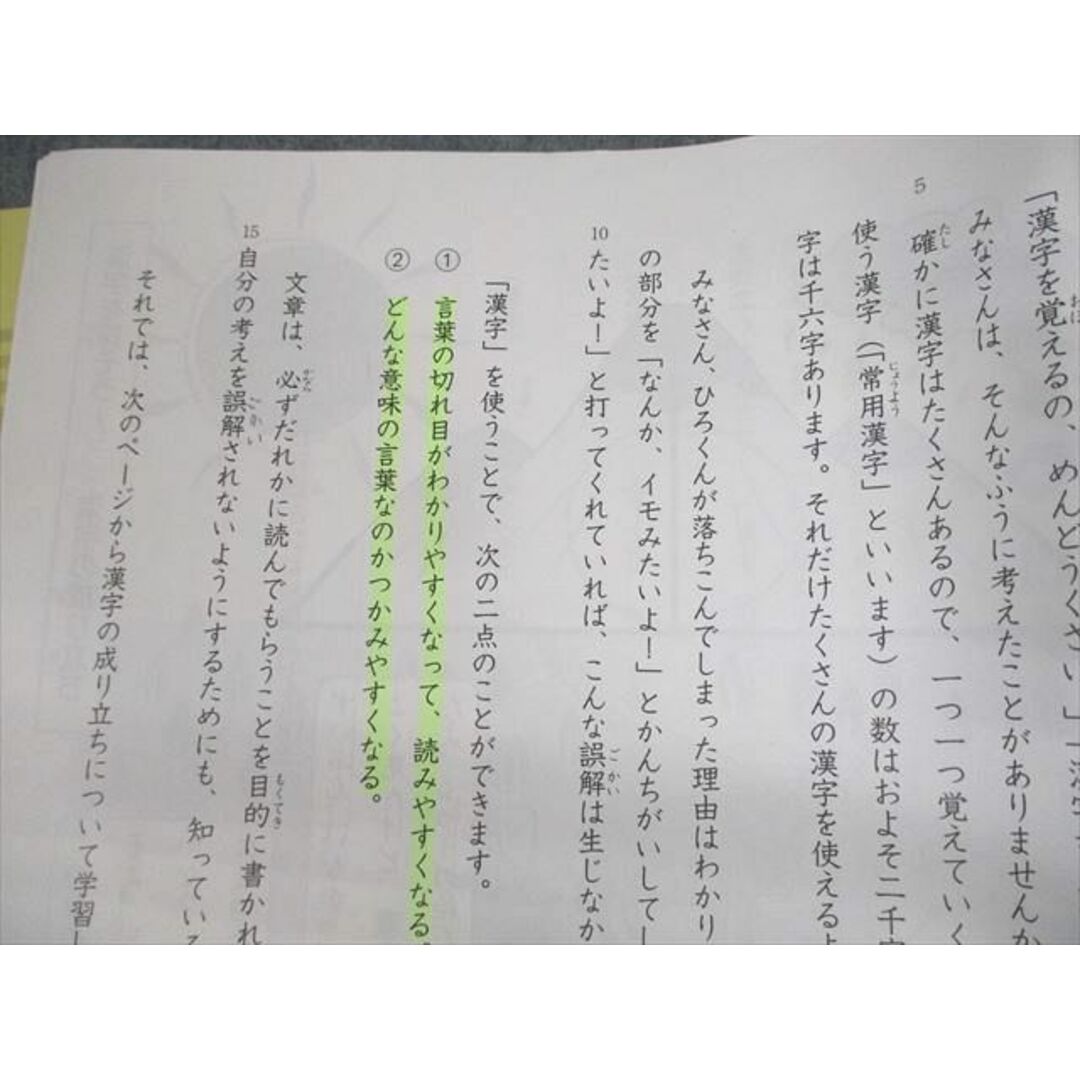 「漢字を覚えるの、めんどうくさい」「漢字
おぼ
みなさんは、そんなふうに考えたことがありませんか
5
確かに漢字はたくさんあるので、一つ一つ覚えていく
たし
使う漢字（「常用漢字」といいます）の数はおよそ二千字
じょうよう
字は千六字あります。それだけたくさんの漢字を使えるよ
みなさん、ひろくんが落ちこんでしまった理由はわかり
の部分を「なんか、イモみたいよ！」とかんちがいしてし
10
たいよ！」と打ってくれていれば、こんな誤解は生じなか
ごかい
「漢字」を使うことで、次の二点のことができます。
① 言葉の切れ目がわかりやすくなって、読みやすくなる。
② どんな意味の言葉なのかつかみやすくなる。
文章は、必ずだれかに読んでもらうことを目的に書かれ
かなら
もくてき
15
自分の考えを誤解されないようにするためにも、知っている
ごかい
それでは、次のページから漢字の成り立ちについて学習し